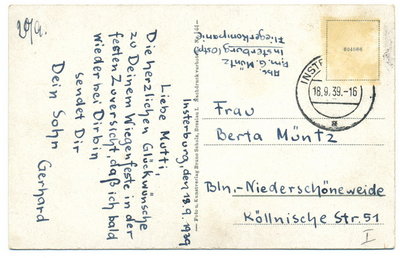 Insterburg, den 18.9.1939
Liebe Mutti,
Die herzlichen Glückwünsche
zu Deinem Wiegenfeste in der
festen Zuversicht, daß ich bald
wieder bei Dir bin
sendet Dir
Dein Sohn Gerhard
G. Müntz
Insterburg (Ostpr)
Fliegerkompanie
18.9.39.-16
Frau
Berta Müntz
Bln.-Niederschöneweide
Köllnische Str. 51
I